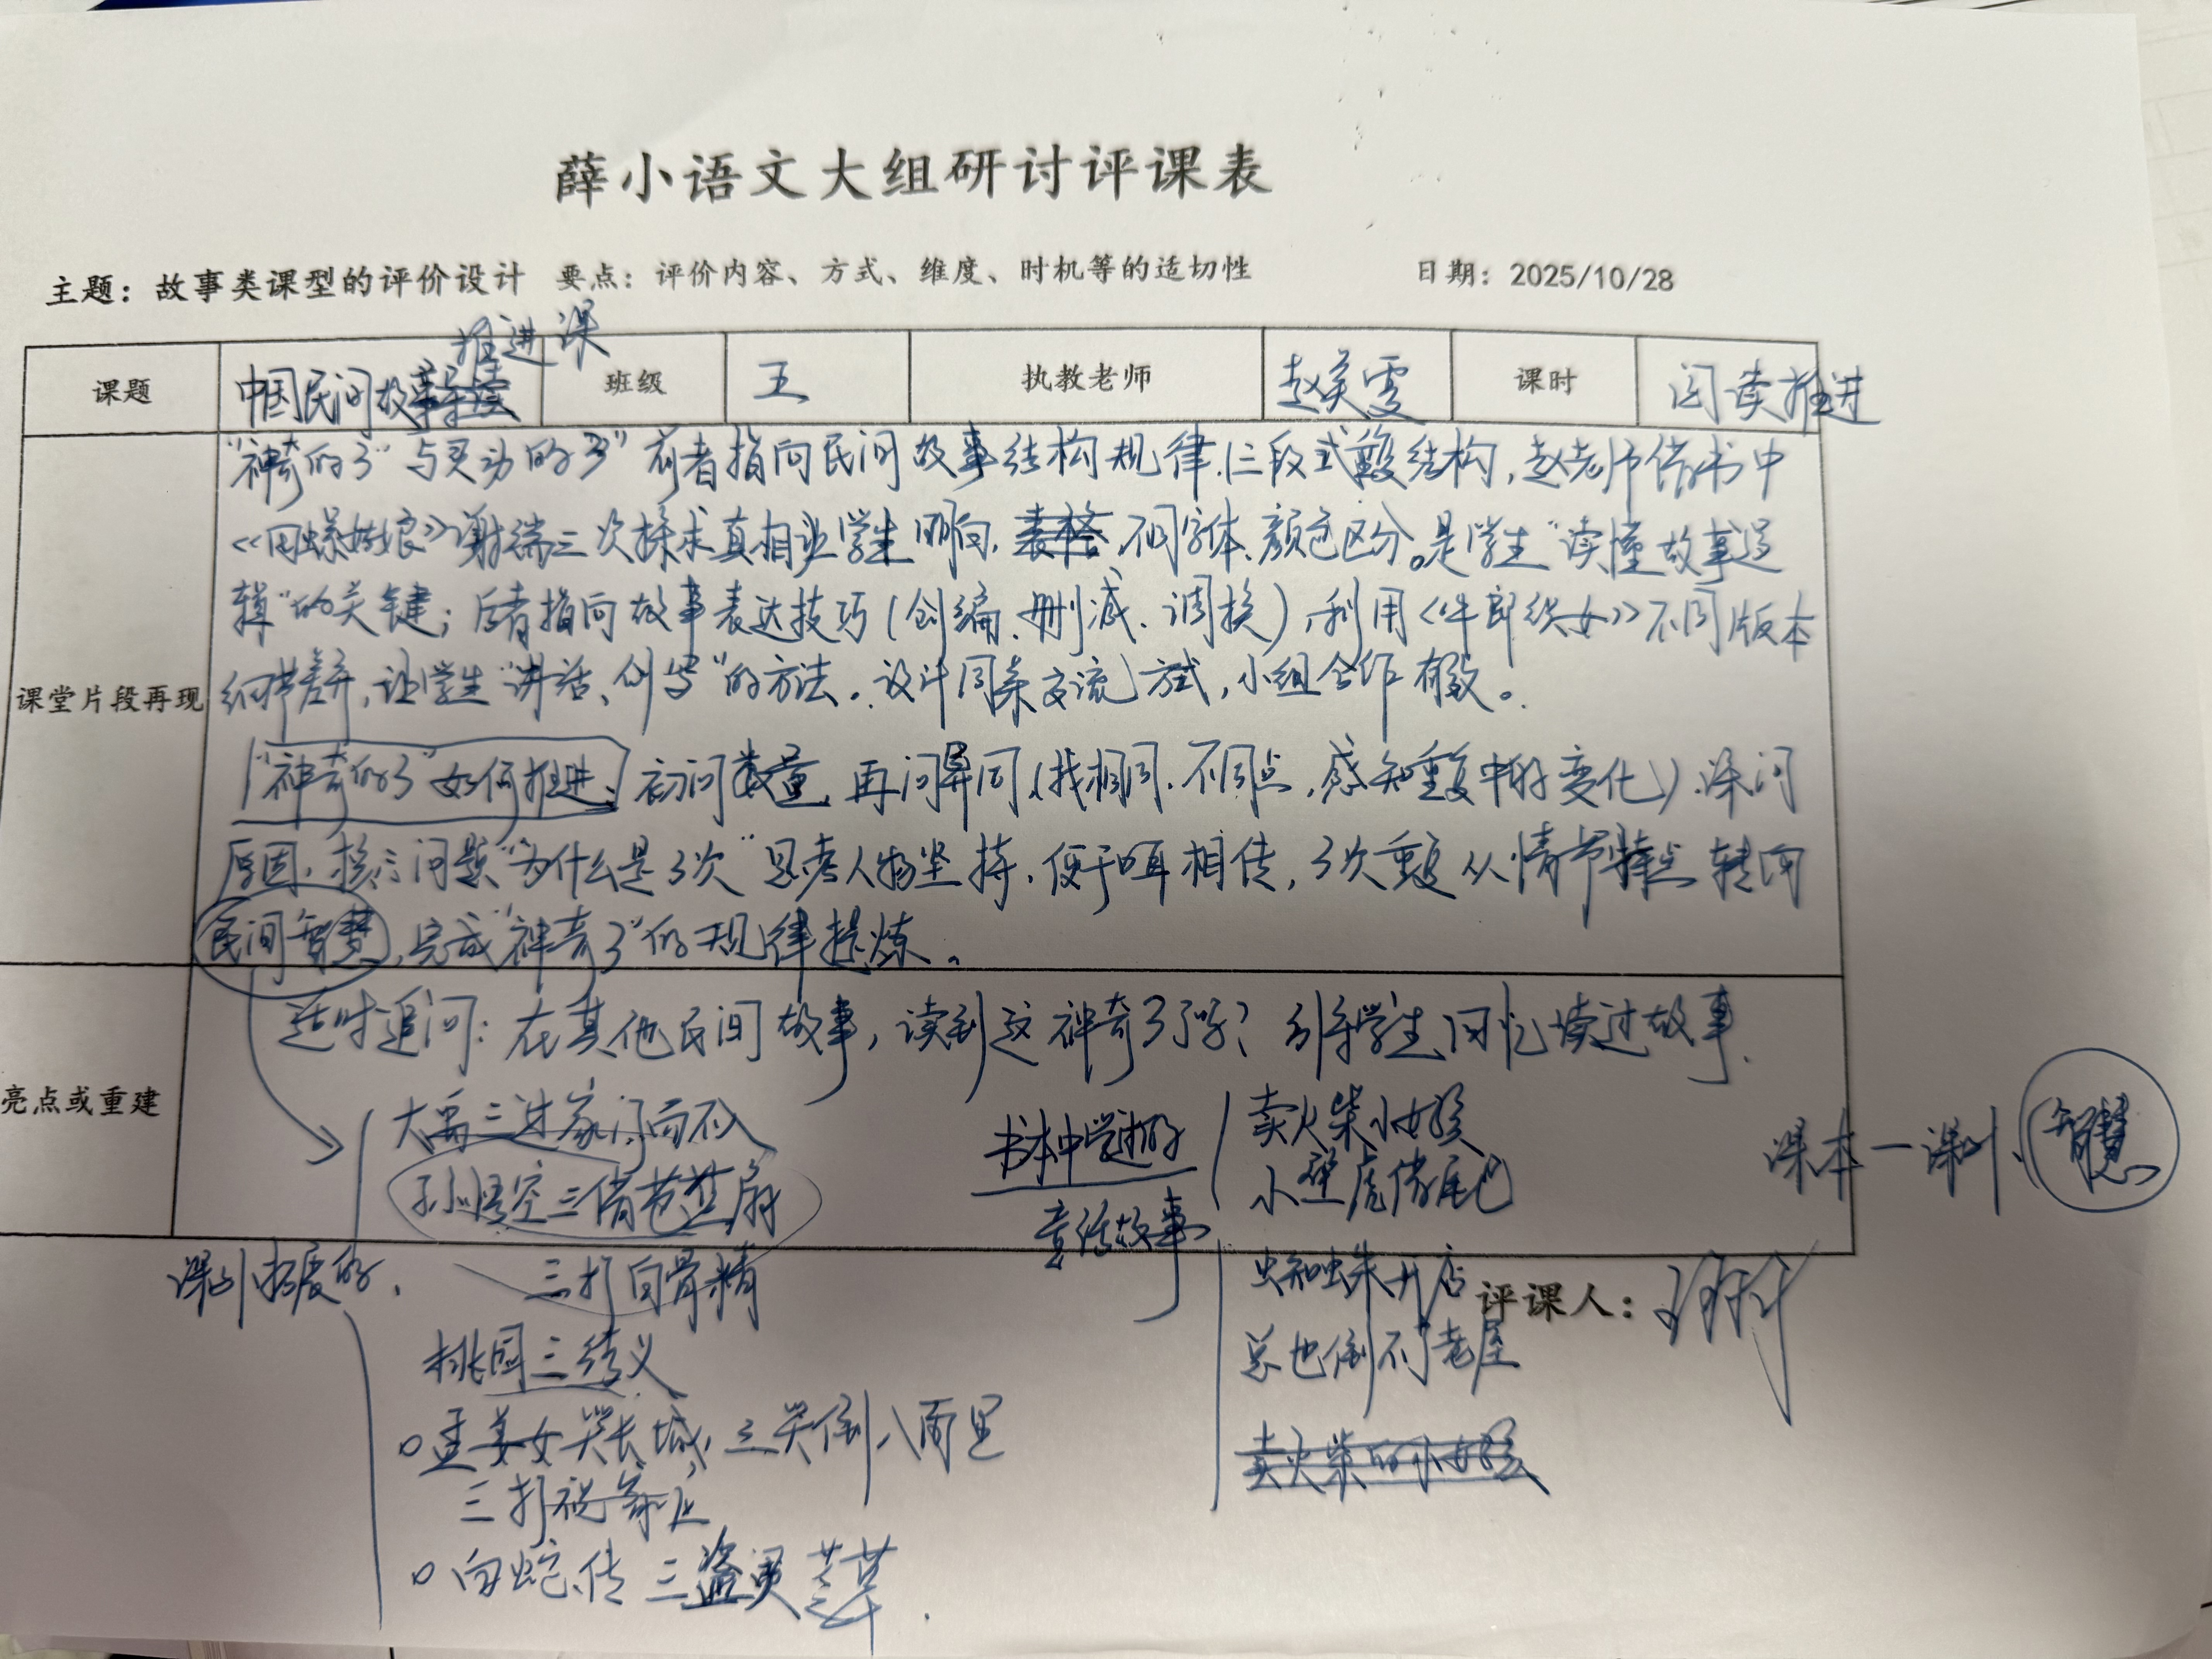 薛小语文大组研讨评课表
主题：故事类课型的评价设计 要点：评价内容、方式、维度、时机等的适切性 日期：2025/10/28
推进课
课题 中国民间故事导读 班级 五 执教老师 赵美雯 课时 阅读推进
课堂片段再现
"神奇的3"与灵动的"3"前者指向民间故事结构规律、(三段式重复结构,赵老师借书中
《田螺姑娘》谢端三次探求真相让学生明向,表格,不同字体、颜色区分。是学生"读懂故事逻
辑"的关键;后者指向故事表达技巧(创编、删减、调换),利用《牛郎织女》不同版本
细节差异,让学生"讲活、创写"的方法。设计同桌交流方式,小组合作有效。
"神奇的3"如何推进:初问数量,再问异同(找相同、不同点,感知重复中的变化)、深问
原因,核心问题"为什么是3次"思考人物坚持、便于口耳相传,3次重复从情节特点转向
民间智慧,完成"神奇3"的规律提炼。
亮点或重建
适时追问:在其他民间故事,读到这神奇3了吗?引导学生回忆读过故事.
大禹三过家门而不入
孙悟空三借芭蕉扇
三打白骨精
桃园三结义
孟姜女哭长城,三哭倒八百里
三打祝家庄
白蛇传 三盗灵芝草.
课外拓展的.
书本中学过的
童话故事
卖火柴小女孩
小壁虎借尾巴
蜘蛛开店
总也倒不了老屋
卖火柴的小女孩
课本—课外、智慧
评课人：